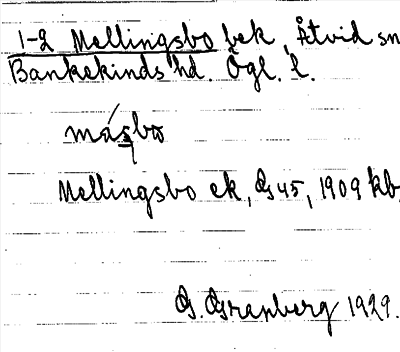 1-2 Mellingsbo bek, Åtvid sn
Bankekinds hd. Ögl. l.
másbo
Mellingsbo ek, G 45, 1909 kb
G. Granberg 1929.